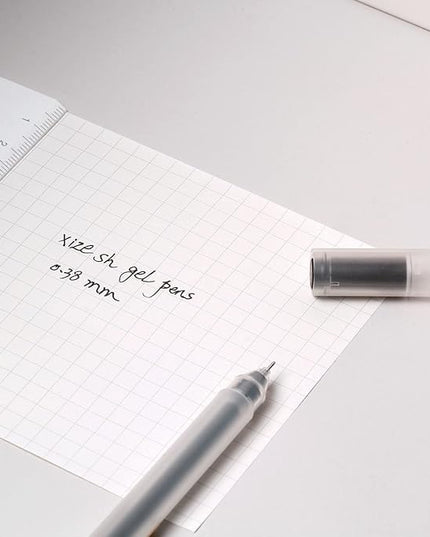 xize sh gel pens
0.38 mm
1
2